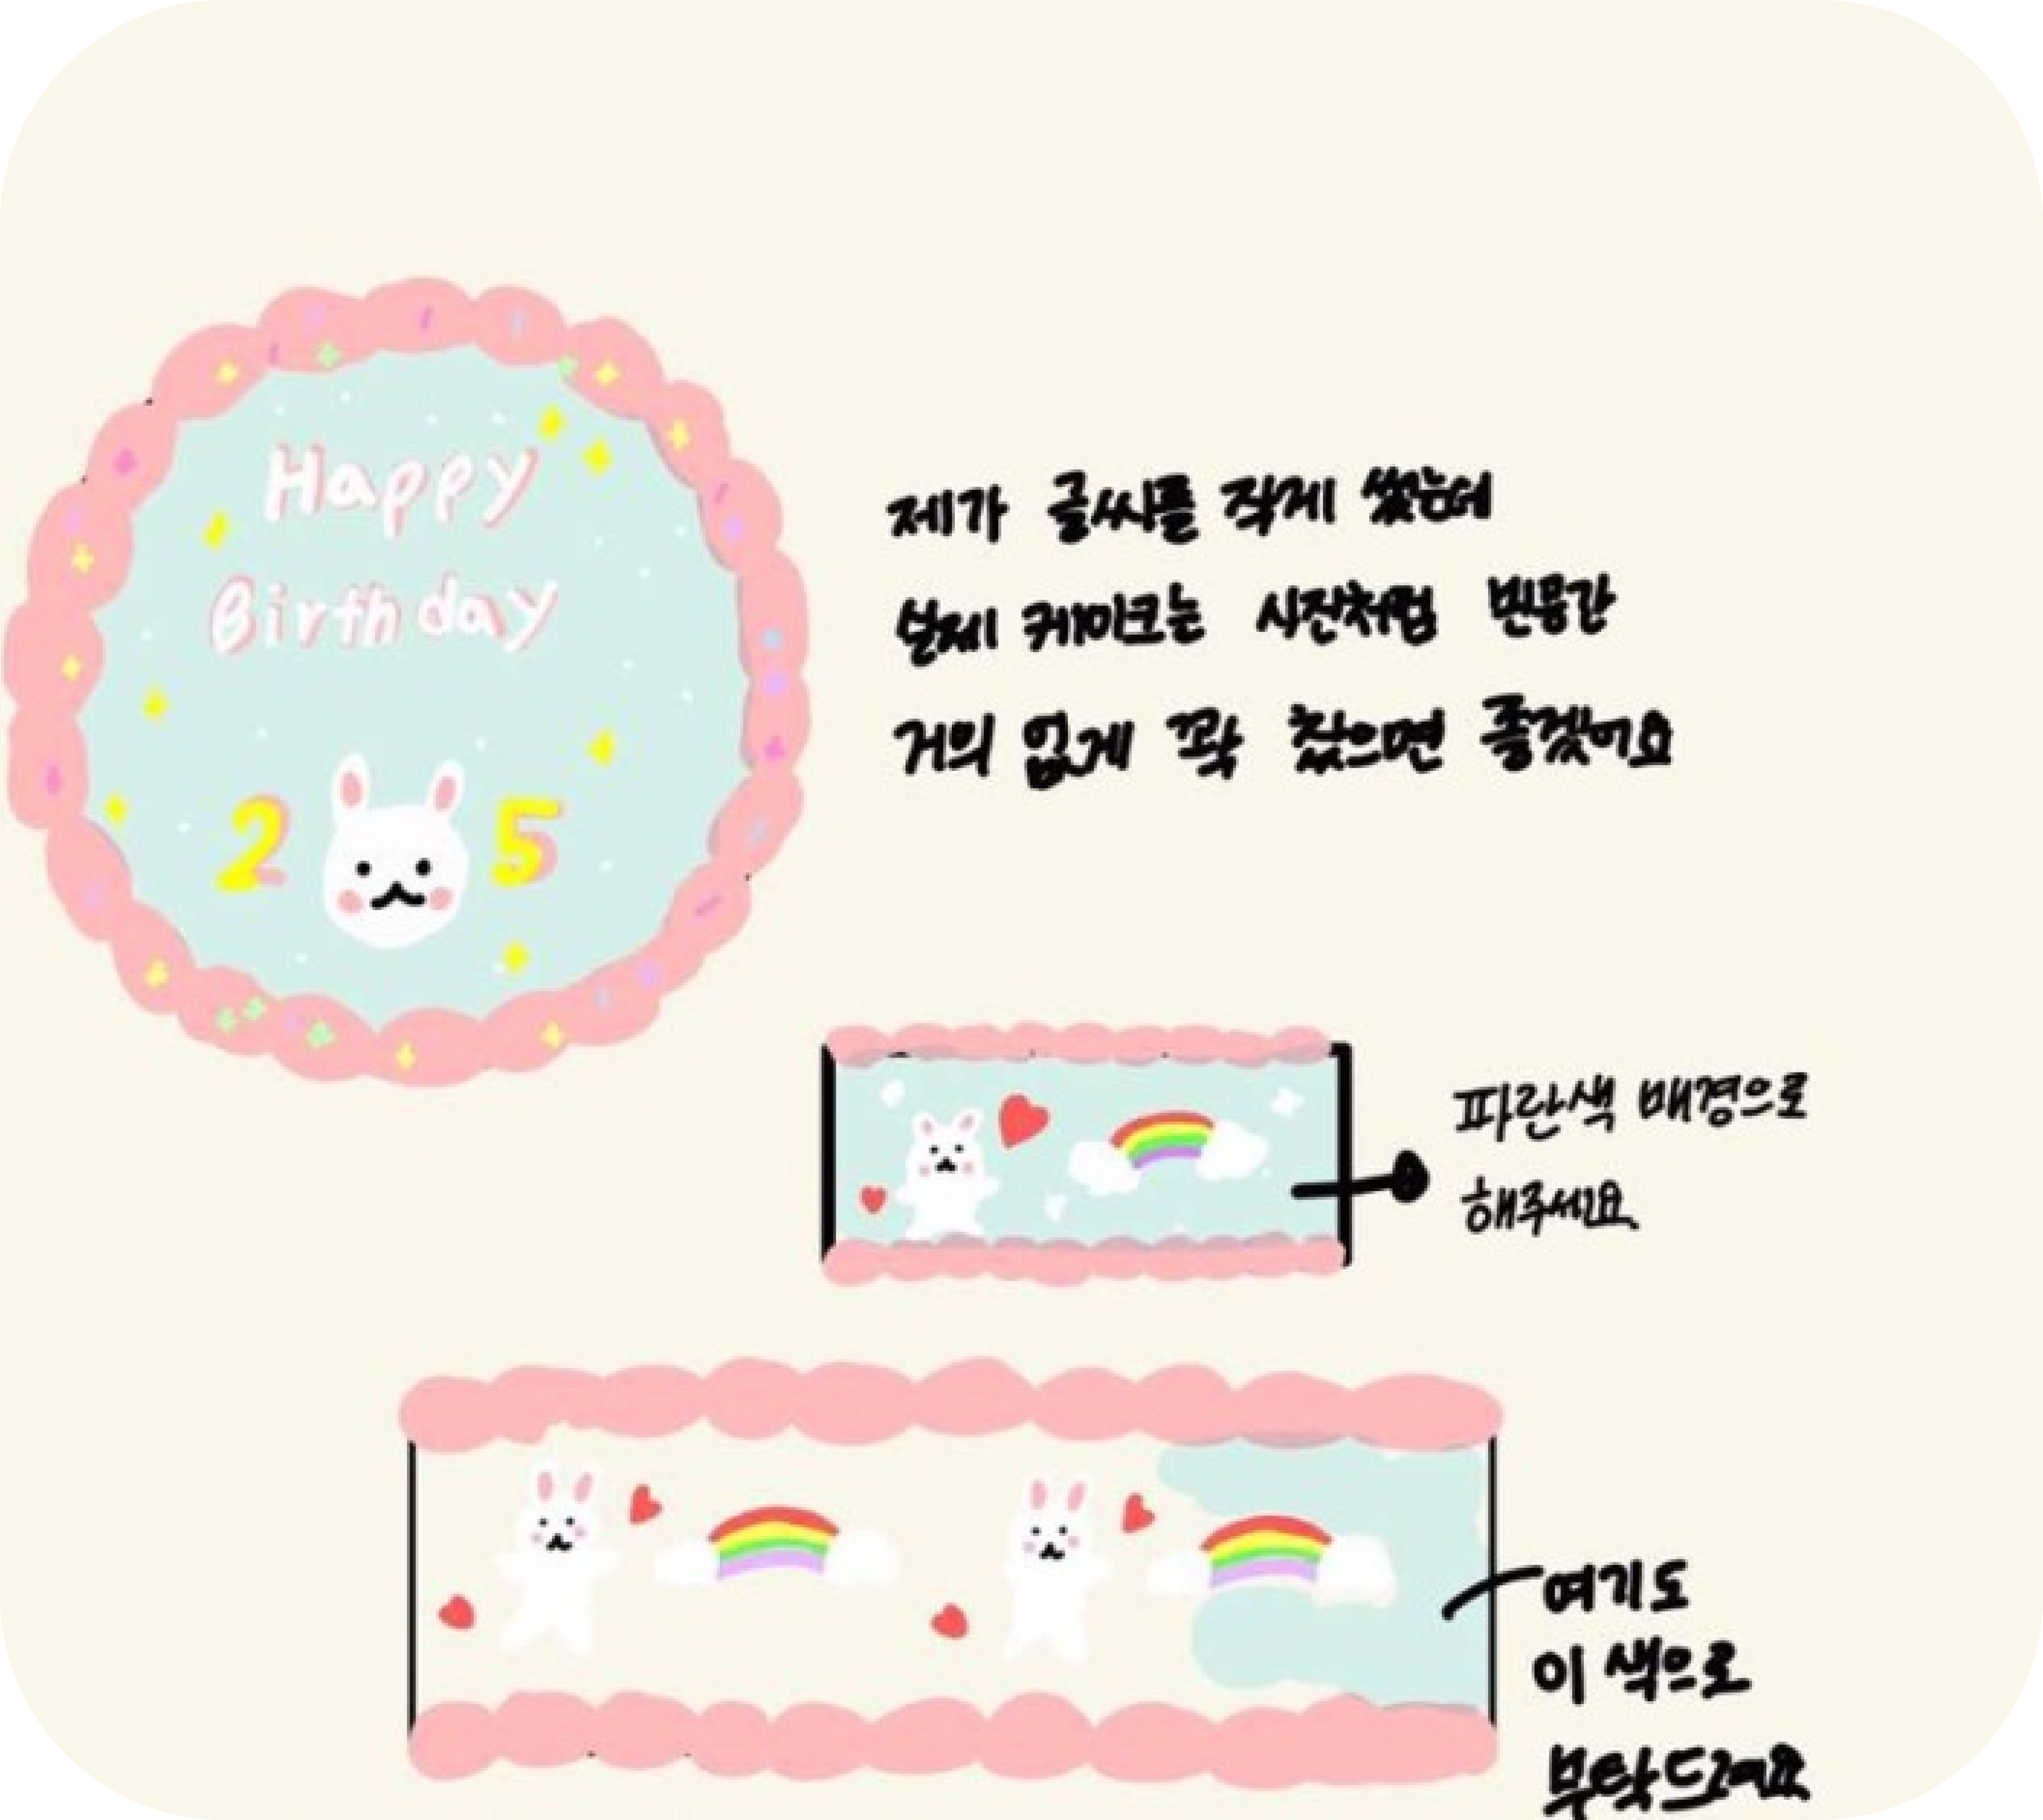 Happy
Birthday
2 5
제가 글씨를 작게 썼는데
실제 케이크는 사진처럼 빈공간
거의 없게 꽉 찼으면 좋겠어요
파란색 배경으로
해주세요.
여기도
이 색으로
부탁드려요